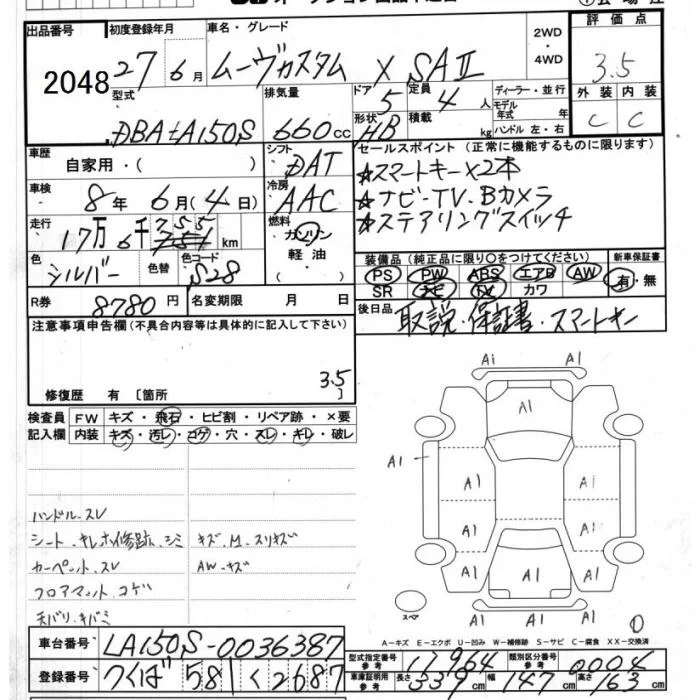 出品番号 初度登録年月 車名・グレード 2WD・4WD 評価点
2048 27年6月 ムーヴカスタム X SAⅡ 3.5
型式 排気量 ドア 5 定員 4人 ディーラー・並行 外装 内装
DBA-LA150S 660cc 形状 HB 積載 kg モデル年式 年 ハンドル 左・右 C C
車歴 自家用・( ) シフト DAT セールスポイント (正常に機能するものに限ります)
★スマートキー×2本
車検 8年 6月(4日) 冷房 AAC ★ナビ・TV・Bカメラ
★ステアリングスイッチ
走行 17万6千 km 燃料 ガソリン・軽油・( )
装備品(純正品に限り○をつけてください) 新車保証書
色 シルバー 色替 色コード S28 PS PW ABS エアB AW 有・無
SR ナビ TV カワ
R券 8780円 名変期限 月 日 後日品 取説・保証書・スマートキー
注意事項申告欄(不具合内容等は具体的に記入して下さい)
3.5
修復歴 有〔箇所
検査員 FW キズ・飛石・ヒビ割・リペア跡・×要
記入欄 内装 キズ・汚レ・コゲ・穴・スレ・キレ・破レ
A1 A1
A1
A1 A1 A1
A1 A1
A1 A1 A1
ハンドル・スレ
シート・キレ補修跡・シミ キズ・M・スリキズ
カーペット・スレ AW・キズ
フロアマット・コゲ
天バリ・キバミ
スペア
A−キズ E−エクボ U−凹み W−補修跡 S−サビ C−腐食 XX−交換済
車台番号 LA150S-0036387
型式指定番号 参考 17964 類別区分番号 参考 0004
登録番号 つくば 581 く 2687
車庫証明用 参考 長さ 339cm 幅 147cm 高さ 163cm